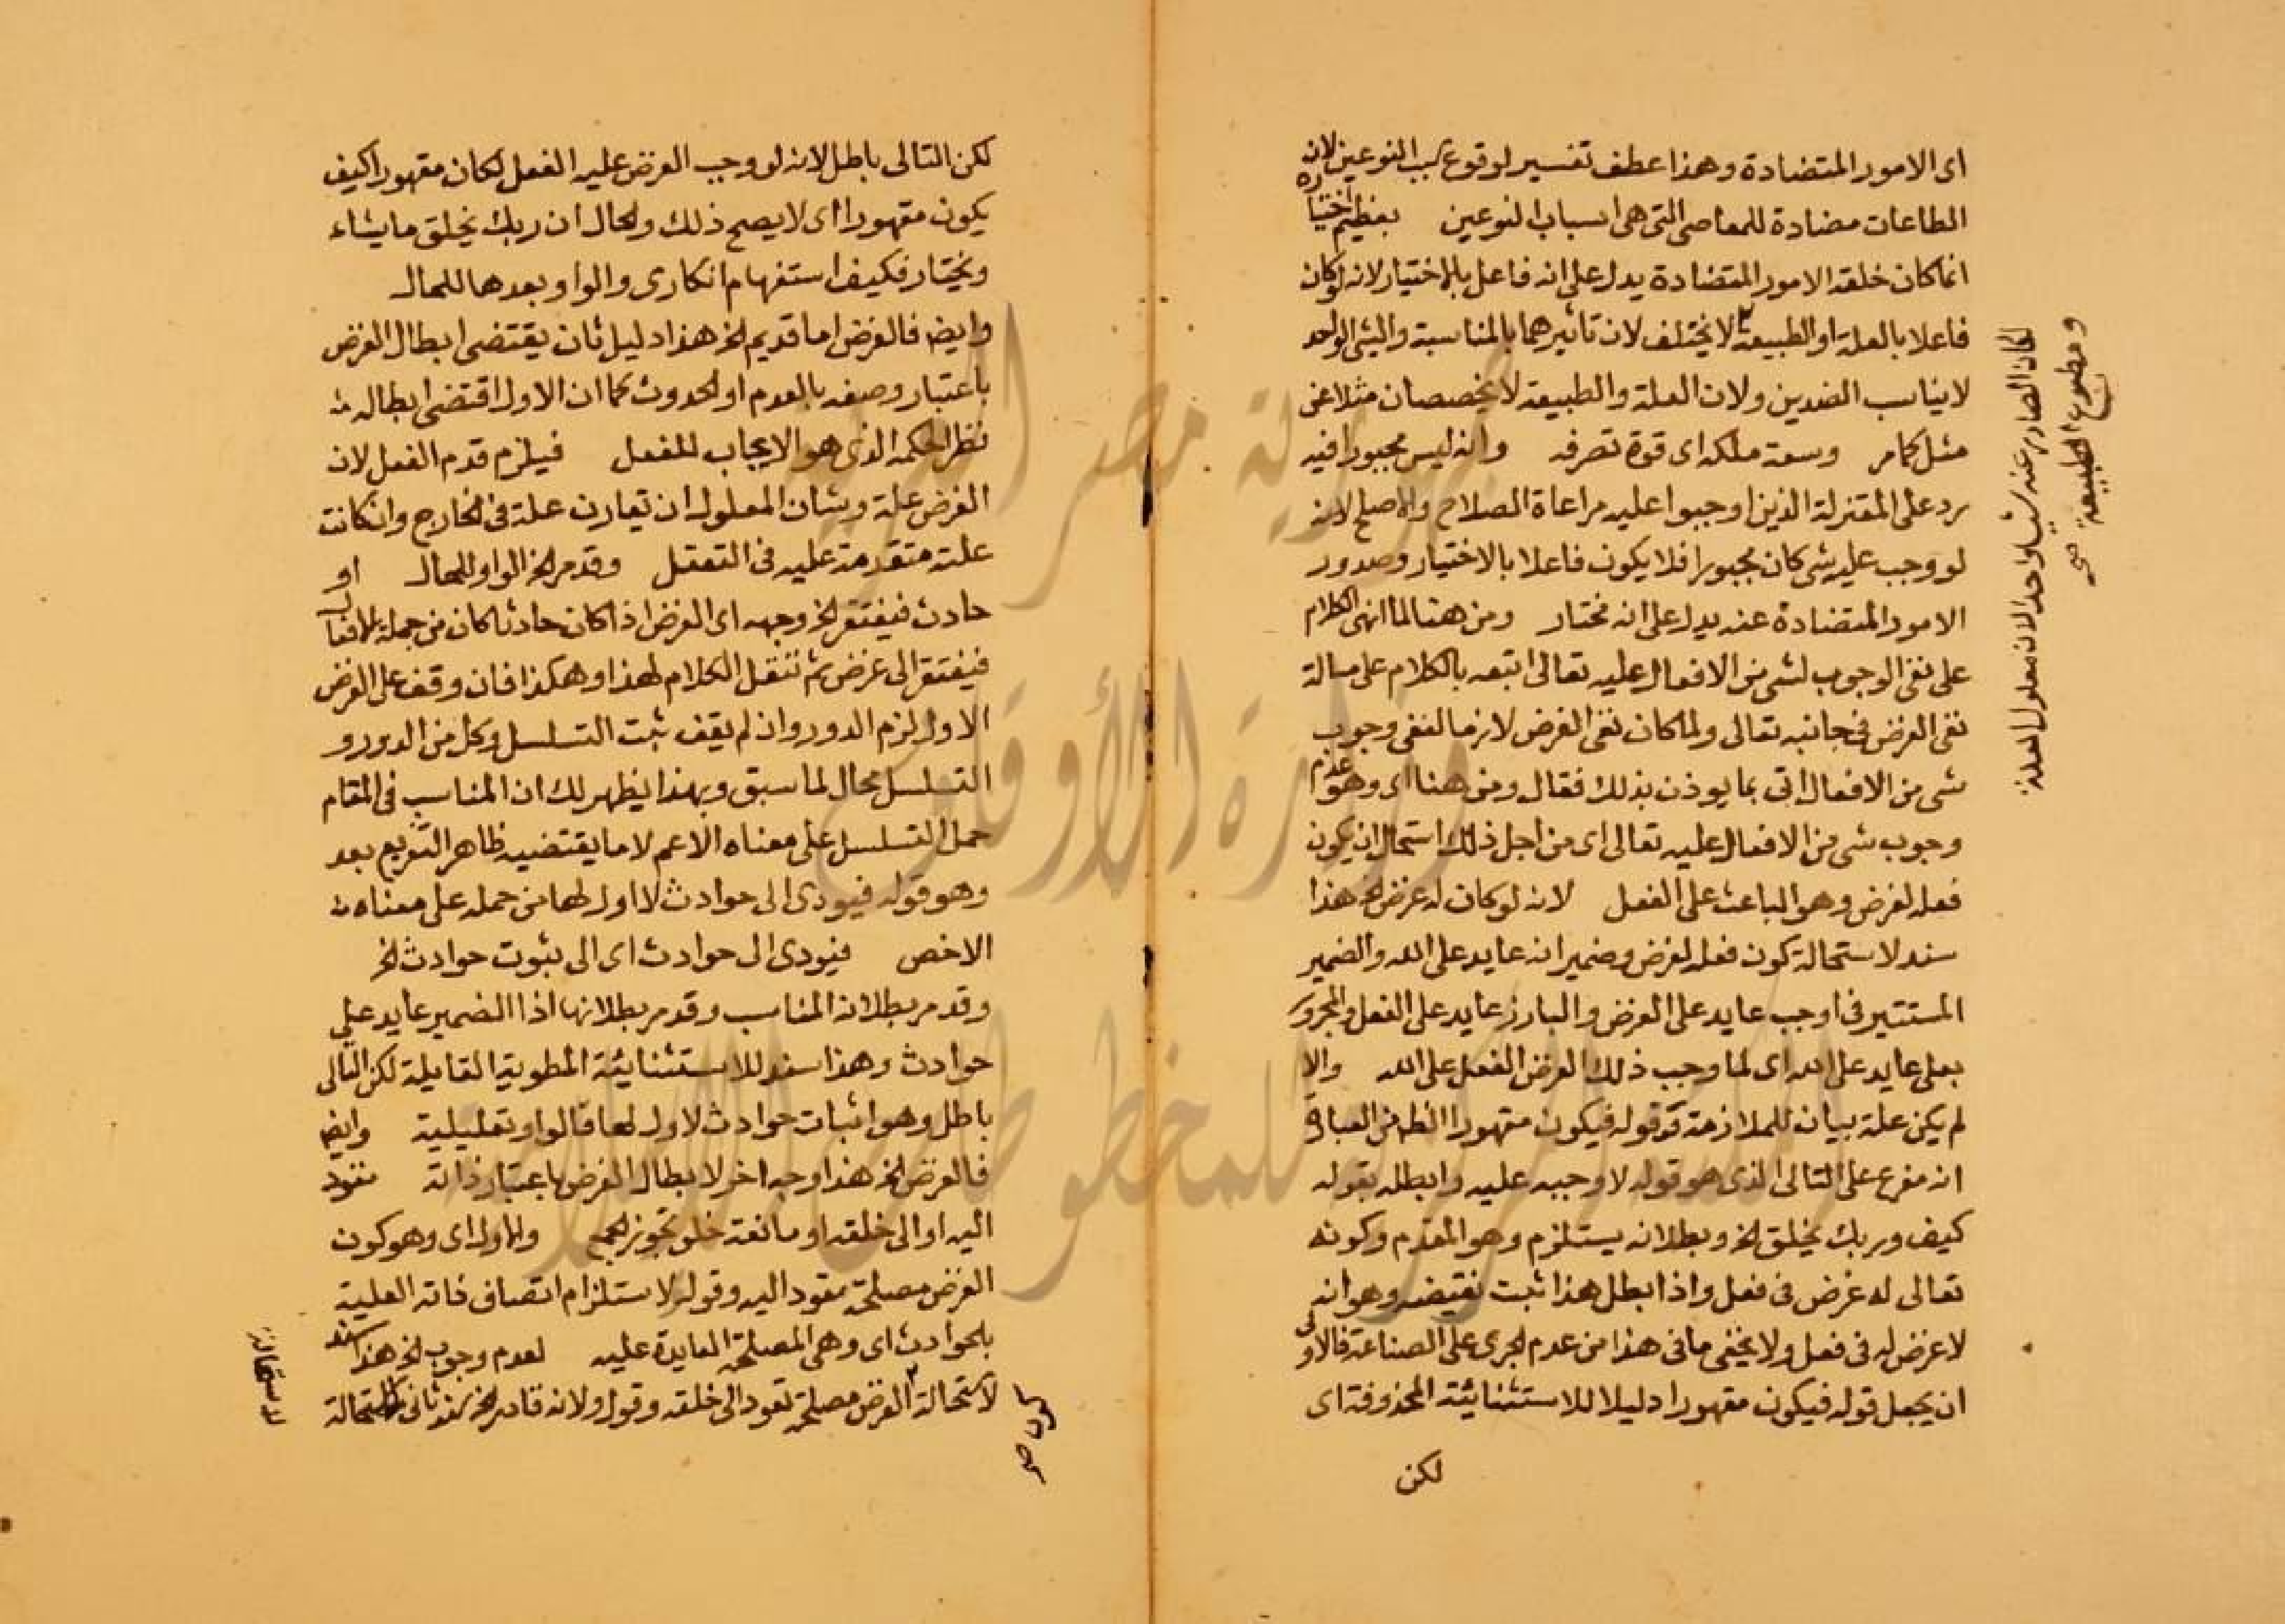 اى الامور المتضادة وهذا عطف تفسير لوقوع سبب النوعين لان
الطاعات مضادة للمعاصى التى هى اسباب النوعين بعظيم اختياره
انما كان خلقه الامور المتضادة يدل على انه فاعل بالاختيار لانه لو كان
فاعلا بالعلة او الطبيعة لا يختلف لان تاثيرهما بالمناسبة والشى الواحد
لا يناسب الضدين ولان العلة والطبيعة لا يخصصان مثلا عن
مثل كما مر وسعة ملكه اى قوة تصرفه وانه ليس مجبورا فيه
رد على المعتزلة الذين اوجبوا عليه مراعاة الصلاح والاصلح لانه
لو وجب عليه شى كان مجبورا فلا يكون فاعلا بالاختيار وصدور
الامور المتضادة عنه يدل على انه مختار ومن هنا لما انهى الكلام
على نفى الوجوب لشى من الافعال عليه تعالى اتبعه بالكلام على مسالة
نفى الغرض فى جانبه تعالى ولما كان نفى الغرض لازما لنفى وجوب
شى من الافعال اتى بما يوذن بذلك فقال ومن هنا اى وهو عدم
وجوب شى من الافعال عليه تعالى اى من اجل ذلك استحال ان يكون
فعله لغرض وهو الباعث على الفعل لانه لو كان له غرض الخ هذا
سند لاستحالة كون فعله لغرض وضمير انه عايد على الله والضمير
المستتير فى اوجب عايد على الغرض والبارز عايد على الفعل والمجرور
بعلى عايد على الله اى لما وجب ذلك الغرض الفعل على الله والا
لم يكن علة بيان للملازمة قوله فيكون مقهورا انظر من العبارة
انه مفرع على التالى الذى هو قوله لاوجبه عليه وابطله بقوله
كيف وربك يخلق الخ وبطلانه يستلزم وهو المقدم وكونه
تعالى له غرض فى فعل واذا بطل هذا ثبت نقيضه وهو انه
لا غرض له فى فعل ولا يخفى ما فى هذا من عدم الجرى على الصناعة فالاولى
ان يجعل قوله فيكون مقهورا دليلا للاستثنائية المحذوفة اى
لكن
لكان الصادر عنه شيا واحدا لانه معلول العلة
ومطبوع الطبيعة صح
لكن التالى باطل لانه لو وجب الغرض عليه الفعل لكان مقهورا كيف
يكون مقهورا اى لا يصح ذلك والحال ان ربك يخلق ما يشاء
ويختار فكيف استفهام انكارى والواو بعدها للحال
وايض فالغرض اما قديم الخ هذا دليل ثان يقتضى ابطال الغرض
باعتبار وصفه بالعدم او الحدوث كما ان الاول اقتضى ابطاله
نظر الحكمه الذى هو الايجاب للفعل فيلزم قدم الفعل لان
الغرض علة وشان المعلول ان تقارن علة فى الخارج وان كانت
علته متقدمة عليه فى التعقل وقد مر الخ الواو للحال او
حادث فيفتقر الخ وجهه اى الغرض اذا كان حادثا كان من جملة الافعال
فيفتقر الى غرض ثم ننقل الكلام لهذا وهكذا فان وقف على الغرض
الاول لزم الدور وان لم يقف ثبت التسلسل وكل من الدور و
التسلسل محال لما سبق وبهذا يظهر لك ان المناسب فى المقام
حمل التسلسل على معناه الاعم لا ما يقتضيه ظاهر التفريع بعد
وهو قوله فيودى الى حوادث لا اول لها من حمله على معناه
الاخص فيودى الى حوادث اى الى ثبوت حوادث الخ
وقد مر بطلانه المناسب وقد مر بطلانها اذا الضمير عايد على
حوادث وهذا سند للاستثنائية المطوية القايلة لكن التالى
باطل وهو اثبات حوادث لا اول لها فالواو تعليلية وايض
فالغرض الخ هذا وجه اخر لابطال الغرض باعتبار ذاته تعود
اليه او الى خلقه او مانعة خلو تجوز الجمع والاول اى وهو كون
الغرض مصلحة تعود اليه وقوله لاستلزام اتصاف ذاته العلية
بالحوادث اى وهى المصلحة العايدة عليه لعدم وجوب الخ هذا سند
لاستحالة الغرض مصلحة تعود الى خلقه وقوله ولانه قادر الخ سند ثانى لاستحالة
كون صح